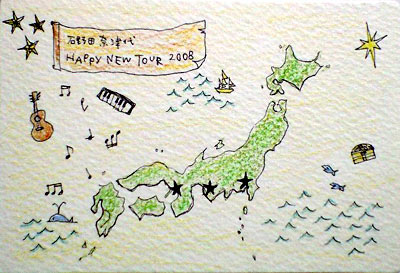 石野田奈津代
HAPPY NEW TOUR 2008